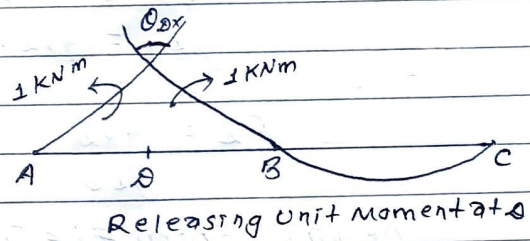 θDX
1 KNm
1 KNm
A
D
B
C
Releasing Unit Moment at D